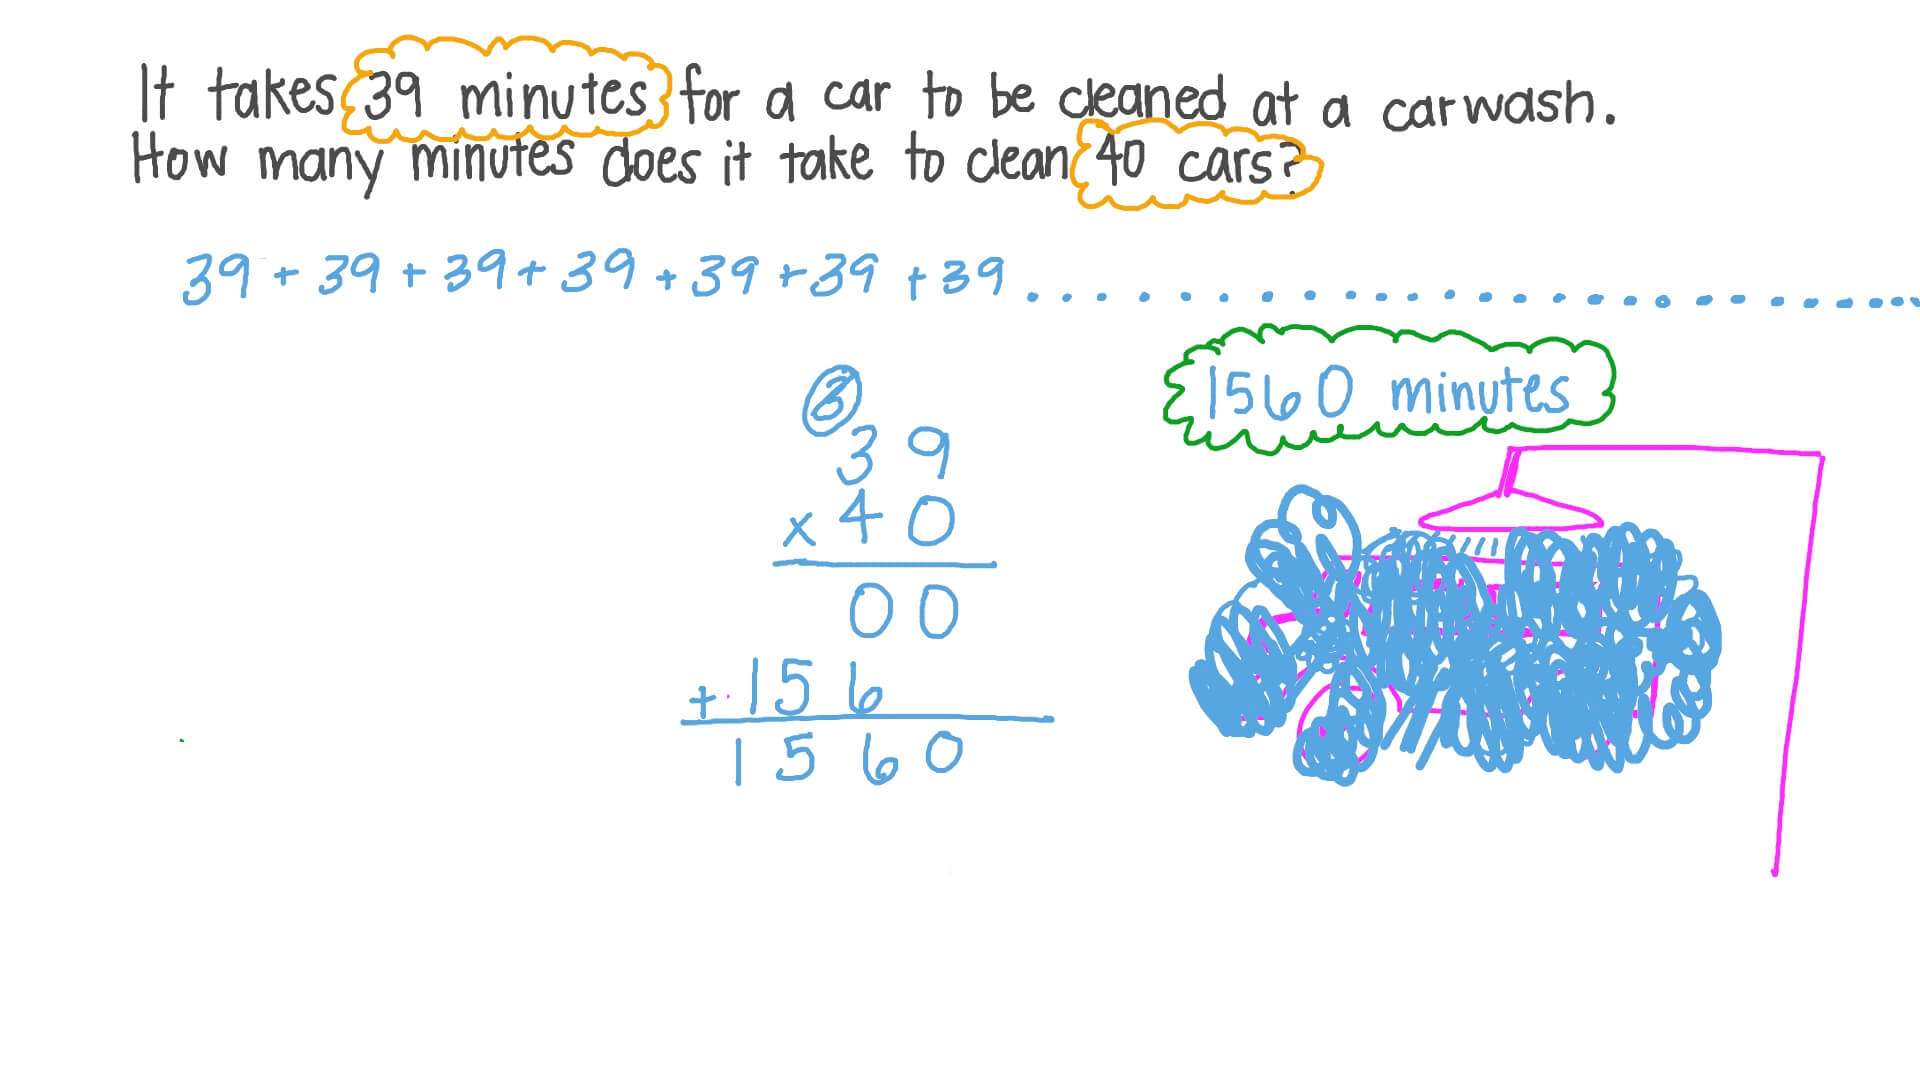 It takes 39 minutes for a car to be cleaned at a carwash.
How many minutes does it take to clean 40 cars?
39 + 39 + 39 + 39 + 39 + 39 + 39 ..............................
1560 minutes
3
39
x 40
00
+ 156
1560